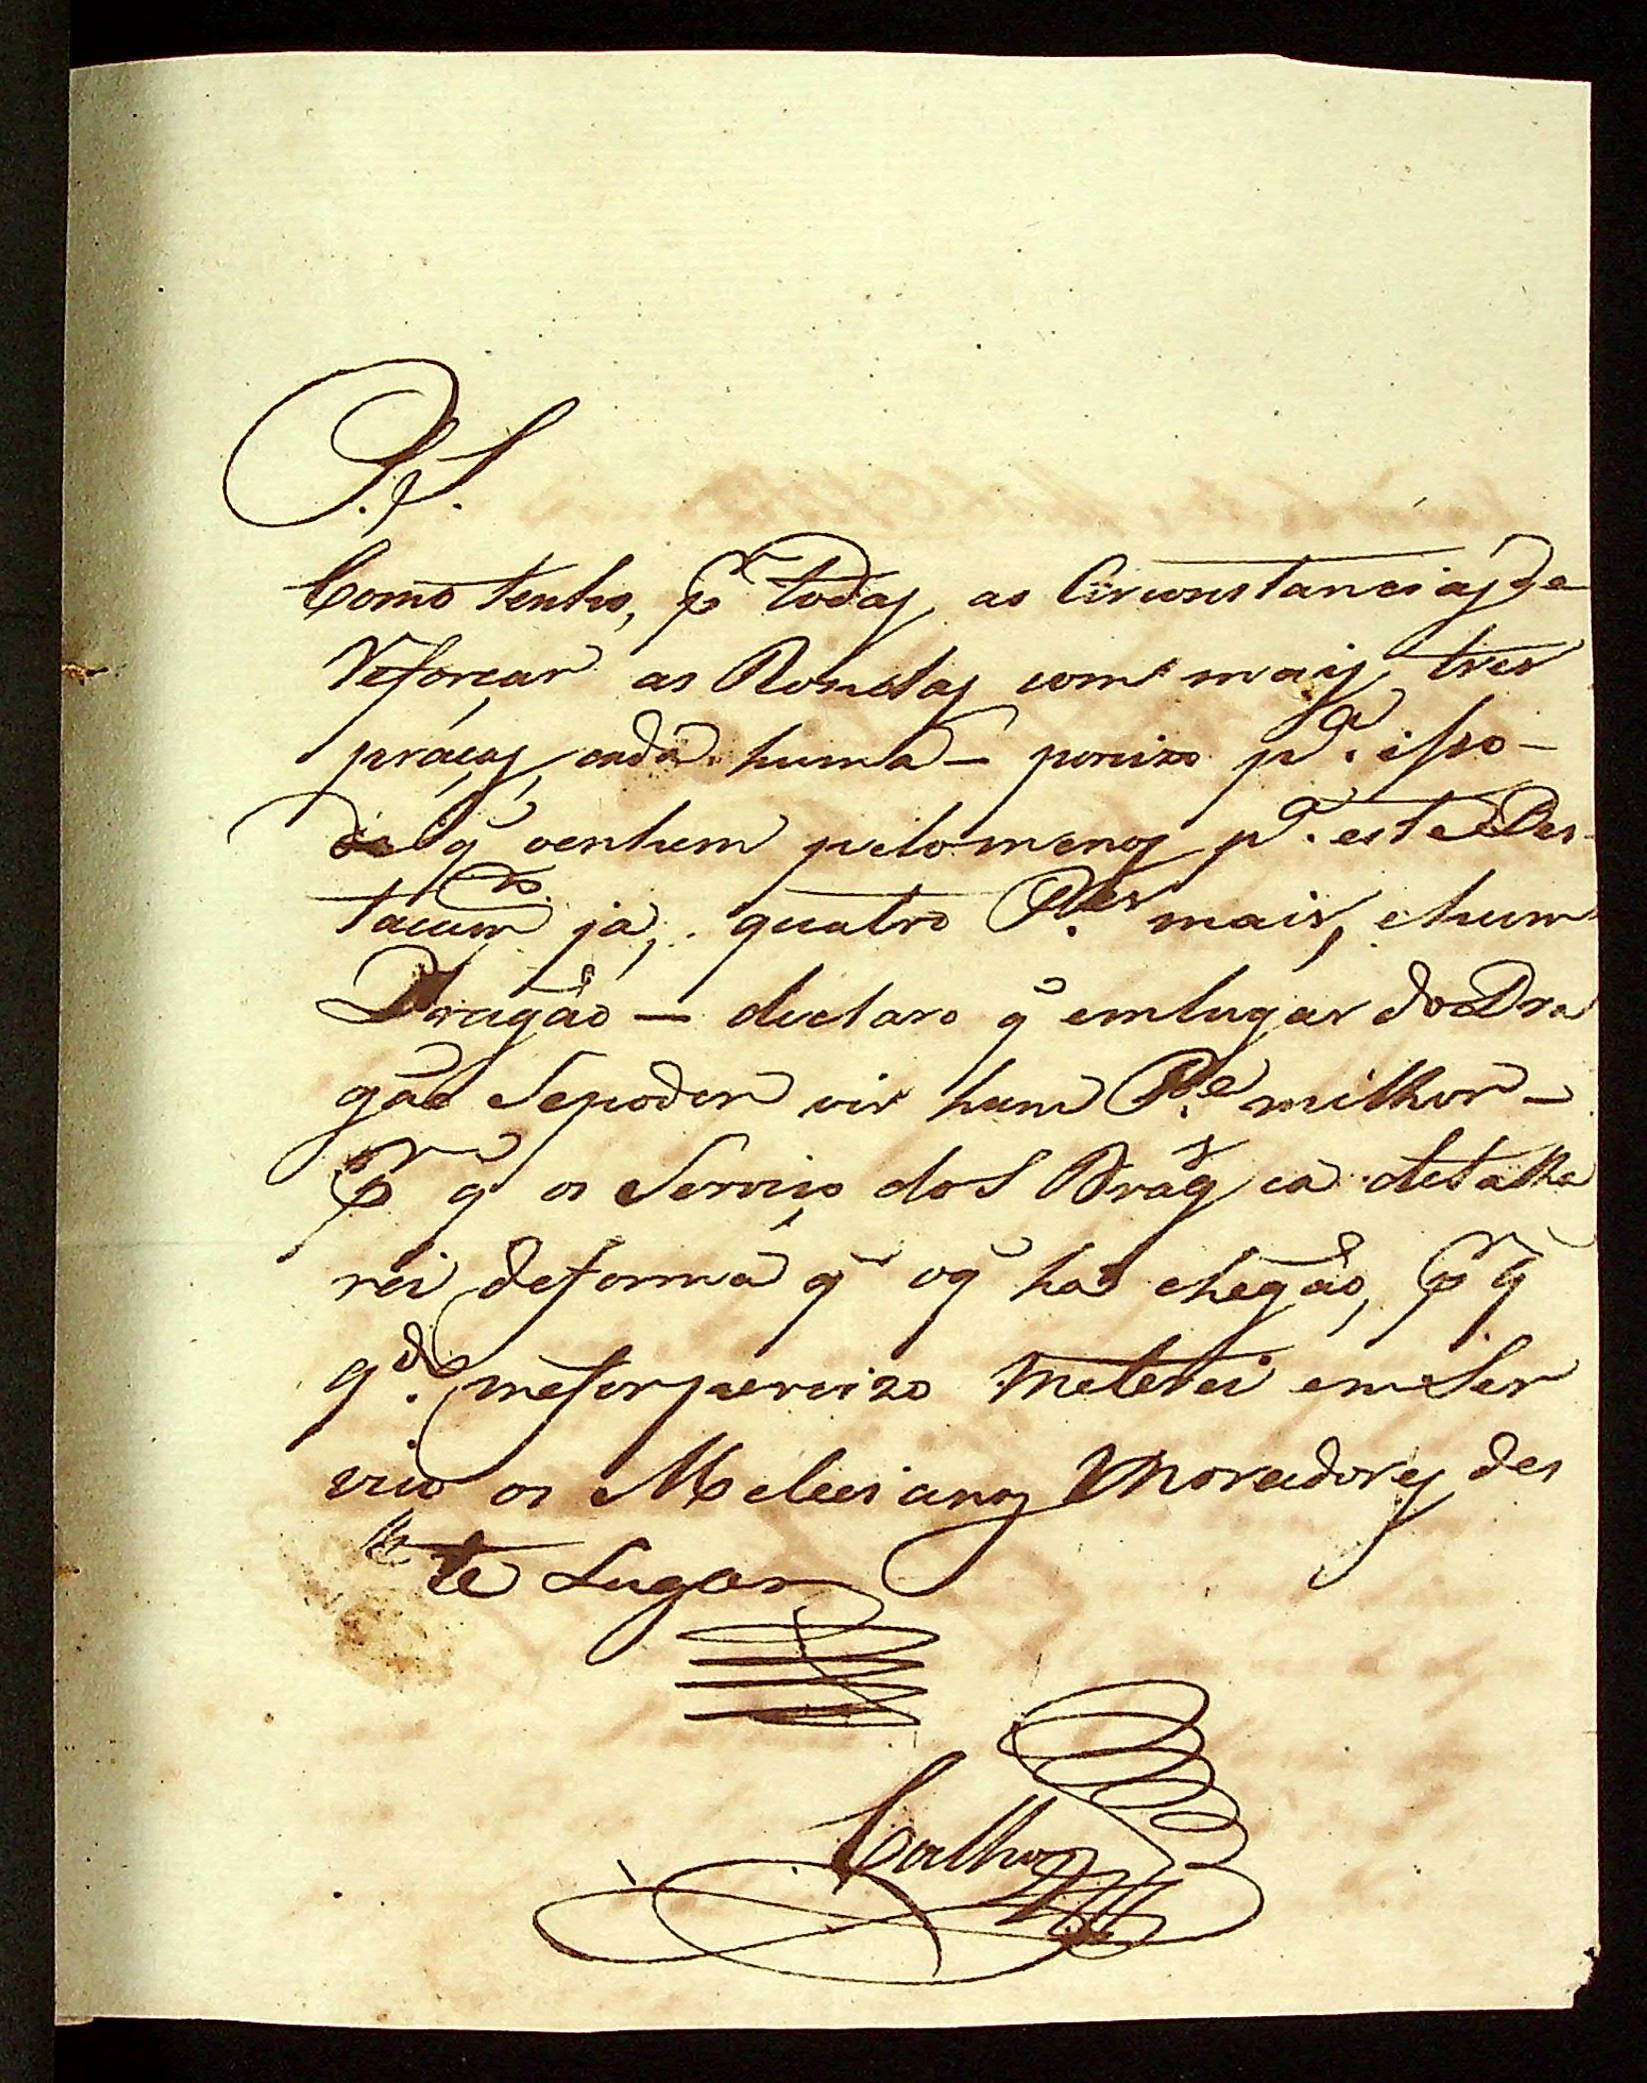 P. S.
Como tenho, pr todas as Circunstancias de
Reforçar as Rondas com mais tres
práças cada huma — precizo pa. isso —
q̃ venhem pelo menos pa. este Des-
tacamto. já, quatro P.es mais, e hum
Dragão — declaro q̃ em lugar do Dra
gão Se poder vir hum P.e milhor —
pr q̃ os Serviço dos Drag.s cá detalha
rei de forma q̃ os q̃ ha chegão, pr q̃
qdo. me for percizo meterei em Ser
viço os Melecianos Moradores des
te Lugar
Coelho